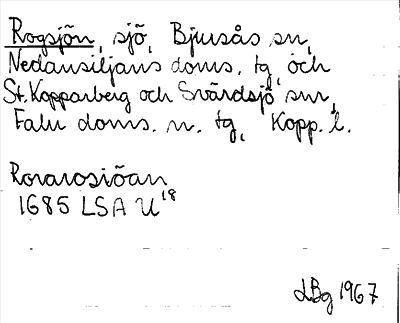 Rogsjön, sjö, Bjursås sn,
Nedansiljans doms. tg, och
St. Kopparberg och Svärdsjö snr,
Falu doms. n. tg, Kopp. l.
Rorarosiöan
1685 LSA U¹⁸
LBg 1967